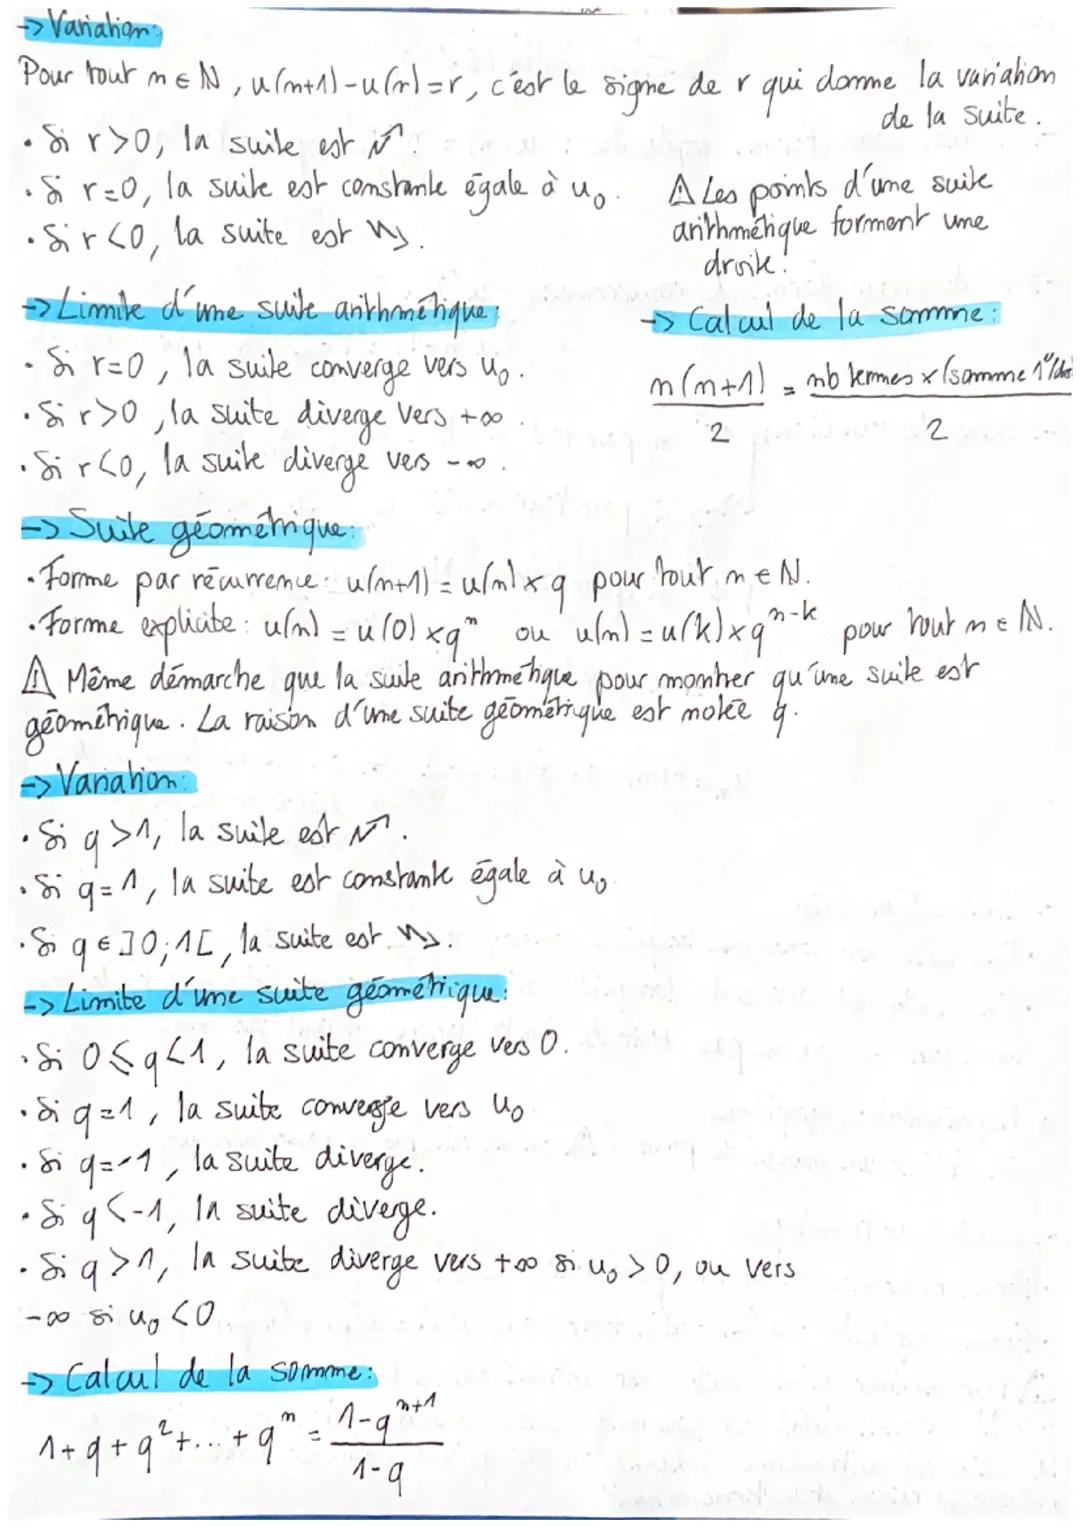 -> Variation:
Pour tout n ∈ N, u(n+1)-u(n)=r, c'est le signe de r qui donne la variation
de la suite.
• Si r>0, la suite est ↗.
• Si r=0, la suite est constante égale à u₀.
• Si r<0, la suite est ↘.
⚠ Les points d'une suite
arithmétique forment une
droite!
-> Limite d'une suite arithmétique:
• Si r=0, la suite converge vers u₀.
• Si r>0, la suite diverge vers +∞
• Si r<0, la suite diverge vers -∞.
-> Calcul de la somme:
n(n+1)/2 = nb termes x (somme 1er/der/2
-> Suite géométrique:
• Forme par récurrence: u(n+1) = u(n) x q pour tout n ∈ N.
• Forme explicite: u(n) = u(0) x qⁿ ou u(n) = u(k) x qⁿ⁻ᵏ pour tout n ∈ N.
⚠ Même démarche que la suite arithmétique pour montrer qu'une suite est
géométrique. La raison d'une suite géométrique est notée q.
-> Variation:
• Si q>1, la suite est ↗.
• Si q=1, la suite est constante égale à u₀
• Si q ∈ ]0;1[, la suite est ↘.
-> Limite d'une suite géométrique:
• Si 0≤q<1, la suite converge vers 0.
• Si q=1, la suite converge vers u₀
• Si q=-1, la suite diverge.
• Si q<-1, la suite diverge.
• Si q>1, la suite diverge vers +∞ si u₀>0, ou vers
-∞ si u₀<0
-> Calcul de la somme:
1+q+q²+...+qⁿ = (1-qⁿ⁺¹)/(1-q)